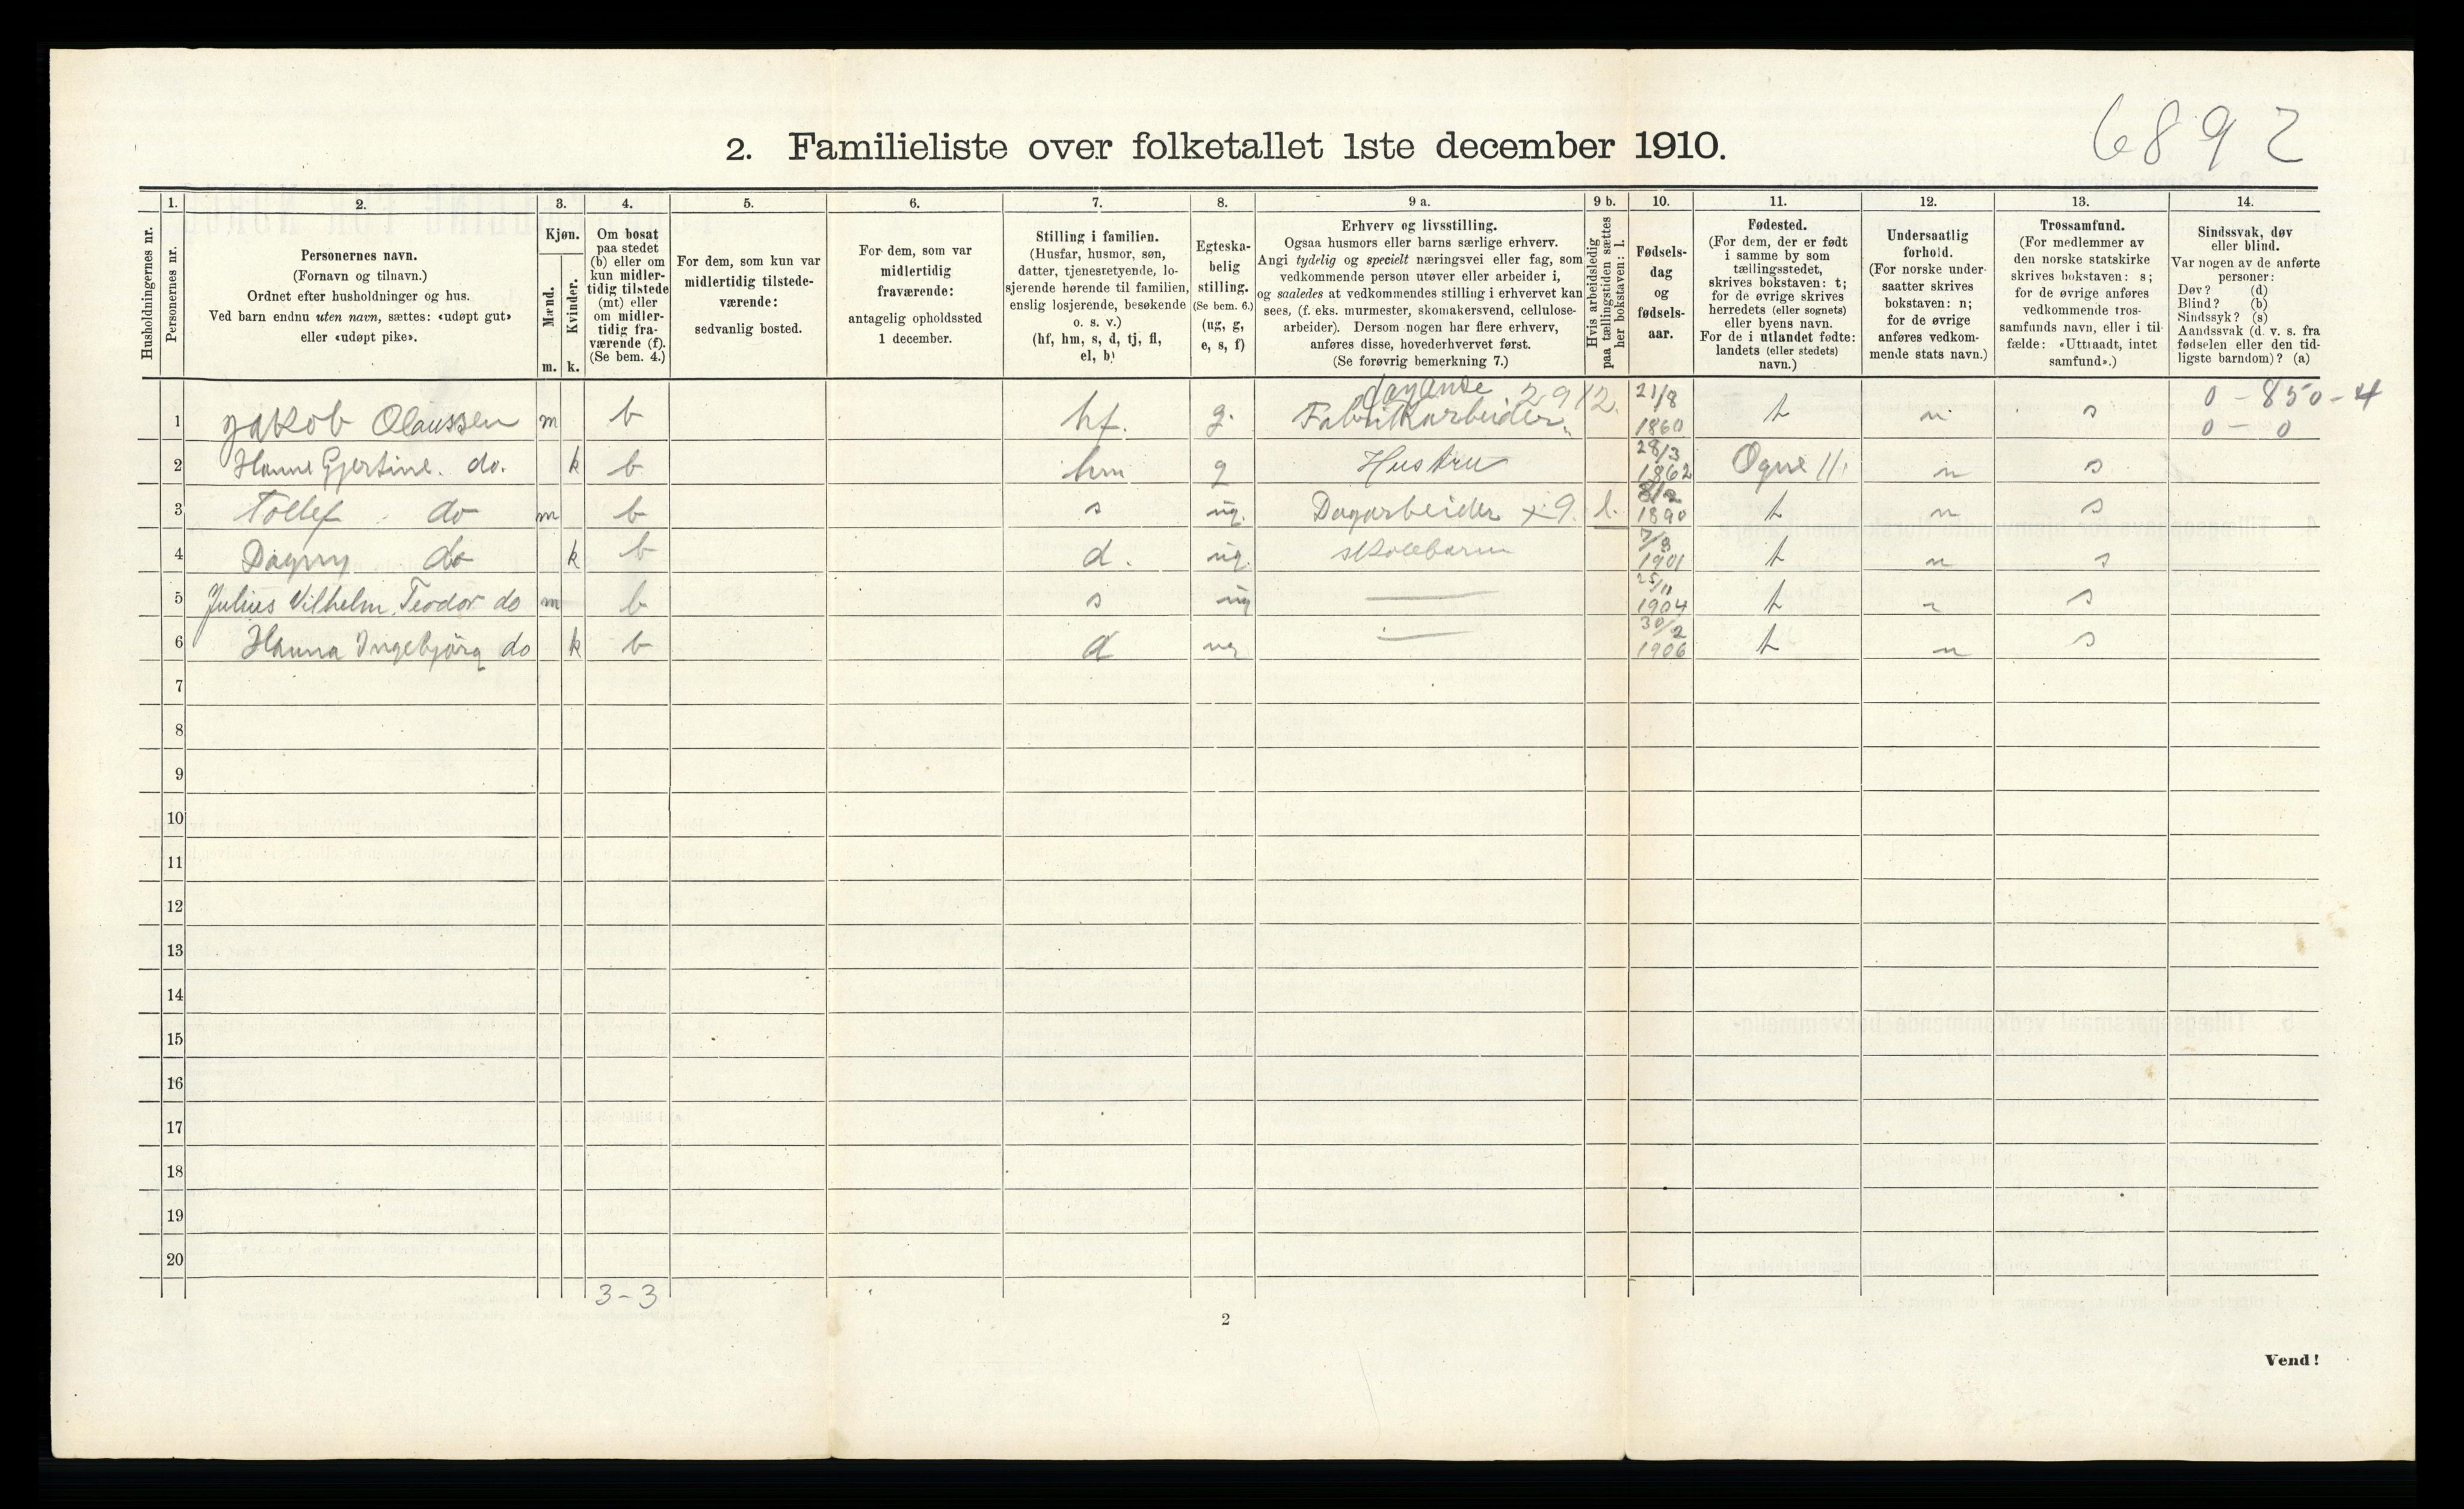 6892
2. Familieliste over folketallet 1ste december 1910.
Husholdningernes nr.
1.
Personernes nr.
2.
Personernes navn.
(Fornavn og tilnavn.)
Ordnet efter husholdninger og hus.
Ved barn endnu uten navn, sættes: «udøpt gut»
eller «udøpt pike».
3.
Kjøn.
Mænd.
Kvinder.
m. k.
4.
Om bosat
paa stedet
(b) eller om
kun midler-
tidig tilstede
(mt) eller
om midler-
tidig fra-
værende (f).
(Se bem. 4.)
5.
For dem, som kun var
midlertidig tilstede-
værende:
sedvanlig bosted.
6.
For dem, som var
midlertidig
fraværende:
antagelig opholdssted
1 december.
7.
Stilling i familien.
(Husfar, husmor, søn,
datter, tjenestetyende, lo-
sjerende hørende til familien,
enslig losjerende, besøkende
o. s. v.)
(hf, hm, s, d, tj, fl,
el, b)
8.
Egteska-
belig
stilling.
(Se bem. 6.)
(ug, g,
e, s, f)
9 a.
Erhverv og livsstilling.
Ogsaa husmors eller barns særlige erhverv.
Angi tydelig og specielt næringsvei eller fag, som
vedkommende person utøver eller arbeider i,
og saaledes at vedkommendes stilling i erhvervet kan
sees, (f. eks. murmester, skomakersvend, cellulose-
arbeider). Dersom nogen har flere erhverv,
anføres disse, hovederhvervet først.
(Se forøvrig bemerkning 7.)
9 b.
Hvis arbeidsledig
paa tællingstiden sættes
her bokstaven: l.
10.
Fødsels-
dag
og
fødsels-
aar.
11.
Fødested.
(For dem, der er født
i samme by som
tællingsstedet,
skrives bokstaven: t;
for de øvrige skrives
herredets (eller sognets)
eller byens navn.
For de i utlandet fødte:
landets (eller stedets)
navn.)
12.
Undersaatlig
forhold.
(For norske under-
saatter skrives
bokstaven: n;
for de øvrige
anføres vedkom-
mende stats navn.)
13.
Trossamfund.
(For medlemmer av
den norske statskirke
skrives bokstaven: s;
for de øvrige anføres
vedkommende tros-
samfunds navn, eller i til-
fælde: «Uttraadt, intet
samfund».)
14.
Sindssvak, døv
eller blind.
Var nogen av de anførte
personer:
Døv? (d)
Blind? (b)
Sindssyk? (s)
Aandssvak (d. v. s. fra
fødselen eller den tid-
ligste barndom)? (a)
2912. 21/8 0 - 850 - 4
1 Jakob Olaussen m b hf. g. Fabrikarbeider 1860 t n s 0 - 0
28/3
2 Hanne Gjertine. do. k b hm g Hustru 1862 Ogne n s
3 Tollef do m b s ug. Dagarbeider x9. l. 1890 t n s
4 Dagny do k b d. ug. skolebarn 7/8 1901 t n s
25/11
5 Julius Vilhelm Teodor do m b s ug — 1904 t n s
30/2
6 Hanna Ingebjörg do k b d ug — 1906 t n s
7
8
9
10
11
12
13
14
15
16
17
18
19
20
3-3
2
Vend!